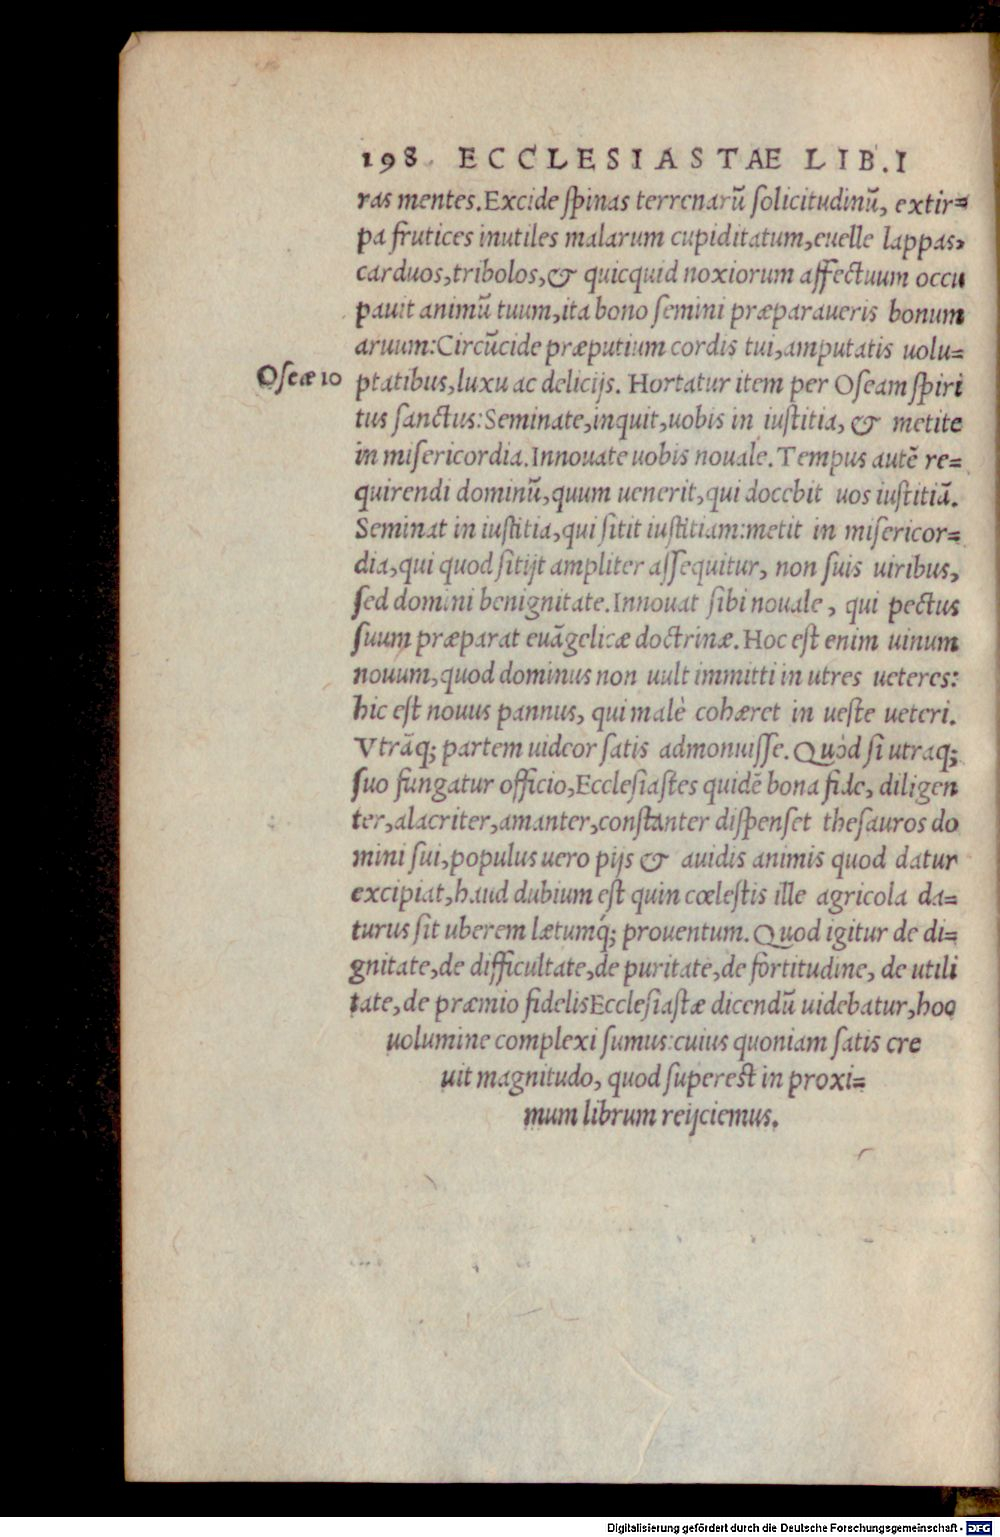 198. ECCLESIASTAE LIB.I
ras mentes.Excide ſpinas terrenarũ ſolicitudinũ, extir=
pa frutices inutiles malarum cupiditatum,euelle lappas,
carduos,tribolos,& quicquid noxiorum affectuum occu
pauit animũ tuum,ita bono ſemini præparaueris bonum
aruum:Circũcide præputium cordis tui,amputatis uolu=
Oſeæ 10 ptatibus,luxu ac delicijs. Hortatur item per Oſeam ſpiri
tus ſanctus:Seminate,inquit,uobis in iuſtitia, & metite
in miſericordia.Innouate uobis nouale.Tempus autẽ re=
quirendi dominũ,quum uenerit,qui docebit uos iuſtitiã.
Seminat in iuſtitia,qui ſitit iuſtitiam:metit in miſericor=
dia,qui quod ſitijt ampliter aſſequitur, non ſuis uiribus,
ſed domini benignitate.Innouat ſibi nouale, qui pectus
ſuum præparat euãgelicæ doctrinæ.Hoc eſt enim uinum
nouum,quod dominus non uult immitti in utres ueteres:
hic eſt nouus pannus, qui malè cohæret in ueſte ueteri.
Vtrãq; partem uideor ſatis admonuiſſe.Quòd ſi utraq;
ſuo fungatur officio,Eccleſiaſtes quidẽ bona fide, diligen
ter,alacriter,amanter,conſtanter diſpenſet theſauros do
mini ſui,populus uero pijs & auidis animis quod datur
excipiat,haud dubium eſt quin cœleſtis ille agricola da=
turus ſit uberem lætumq́; prouentum.Quod igitur de di=
gnitate,de difficultate,de puritate,de fortitudine, de utili
tate,de præmio fidelis Eccleſiaſtæ dicendũ uidebatur,hoc
uolumine complexi ſumus:cuius quoniam ſatis cre
uit magnitudo, quod ſupereſt in proxi=
mum librum reijciemus.
Digitalisierung gefördert durch die Deutsche Forschungsgemeinschaft - DFG